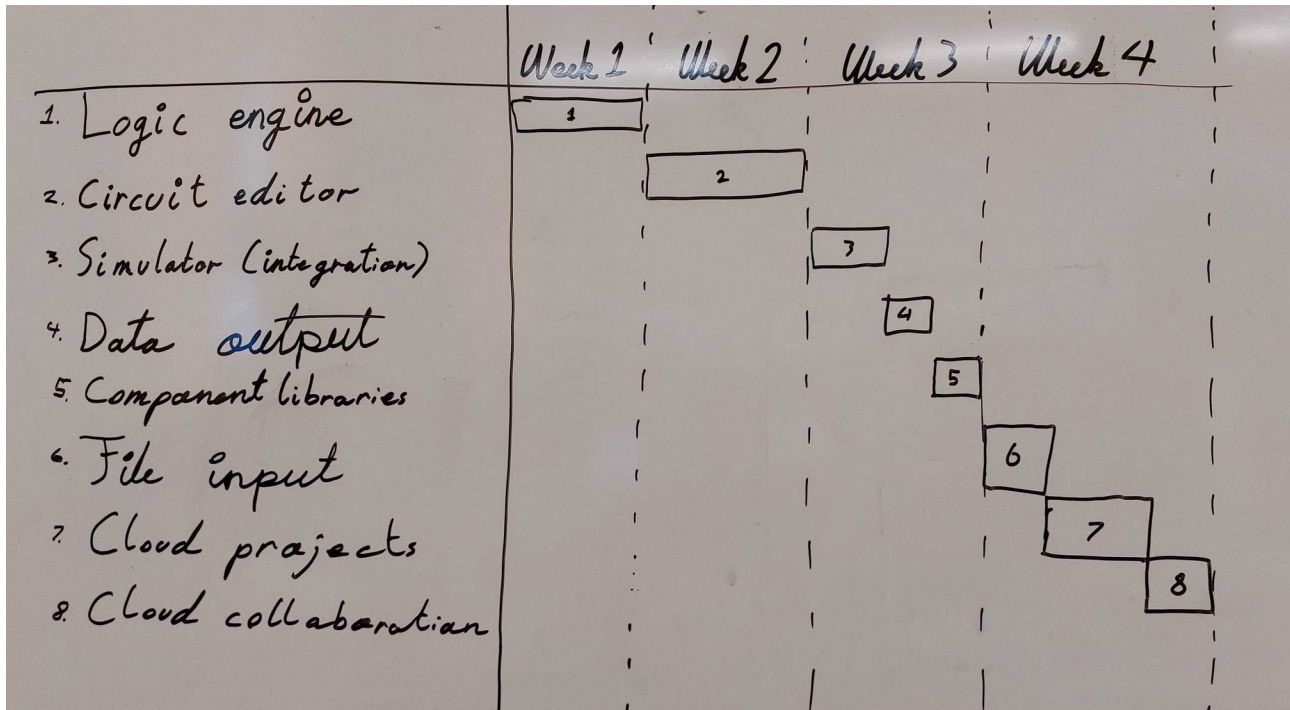 Week 1 Week 2 Week 3 Week 4
1. Logic engine 1
2. Circuit editor 2
3. Simulator (integration) 3
4. Data output 4
5. Component libraries 5
6. File input 6
7. Cloud projects 7
8. Cloud collaboration 8